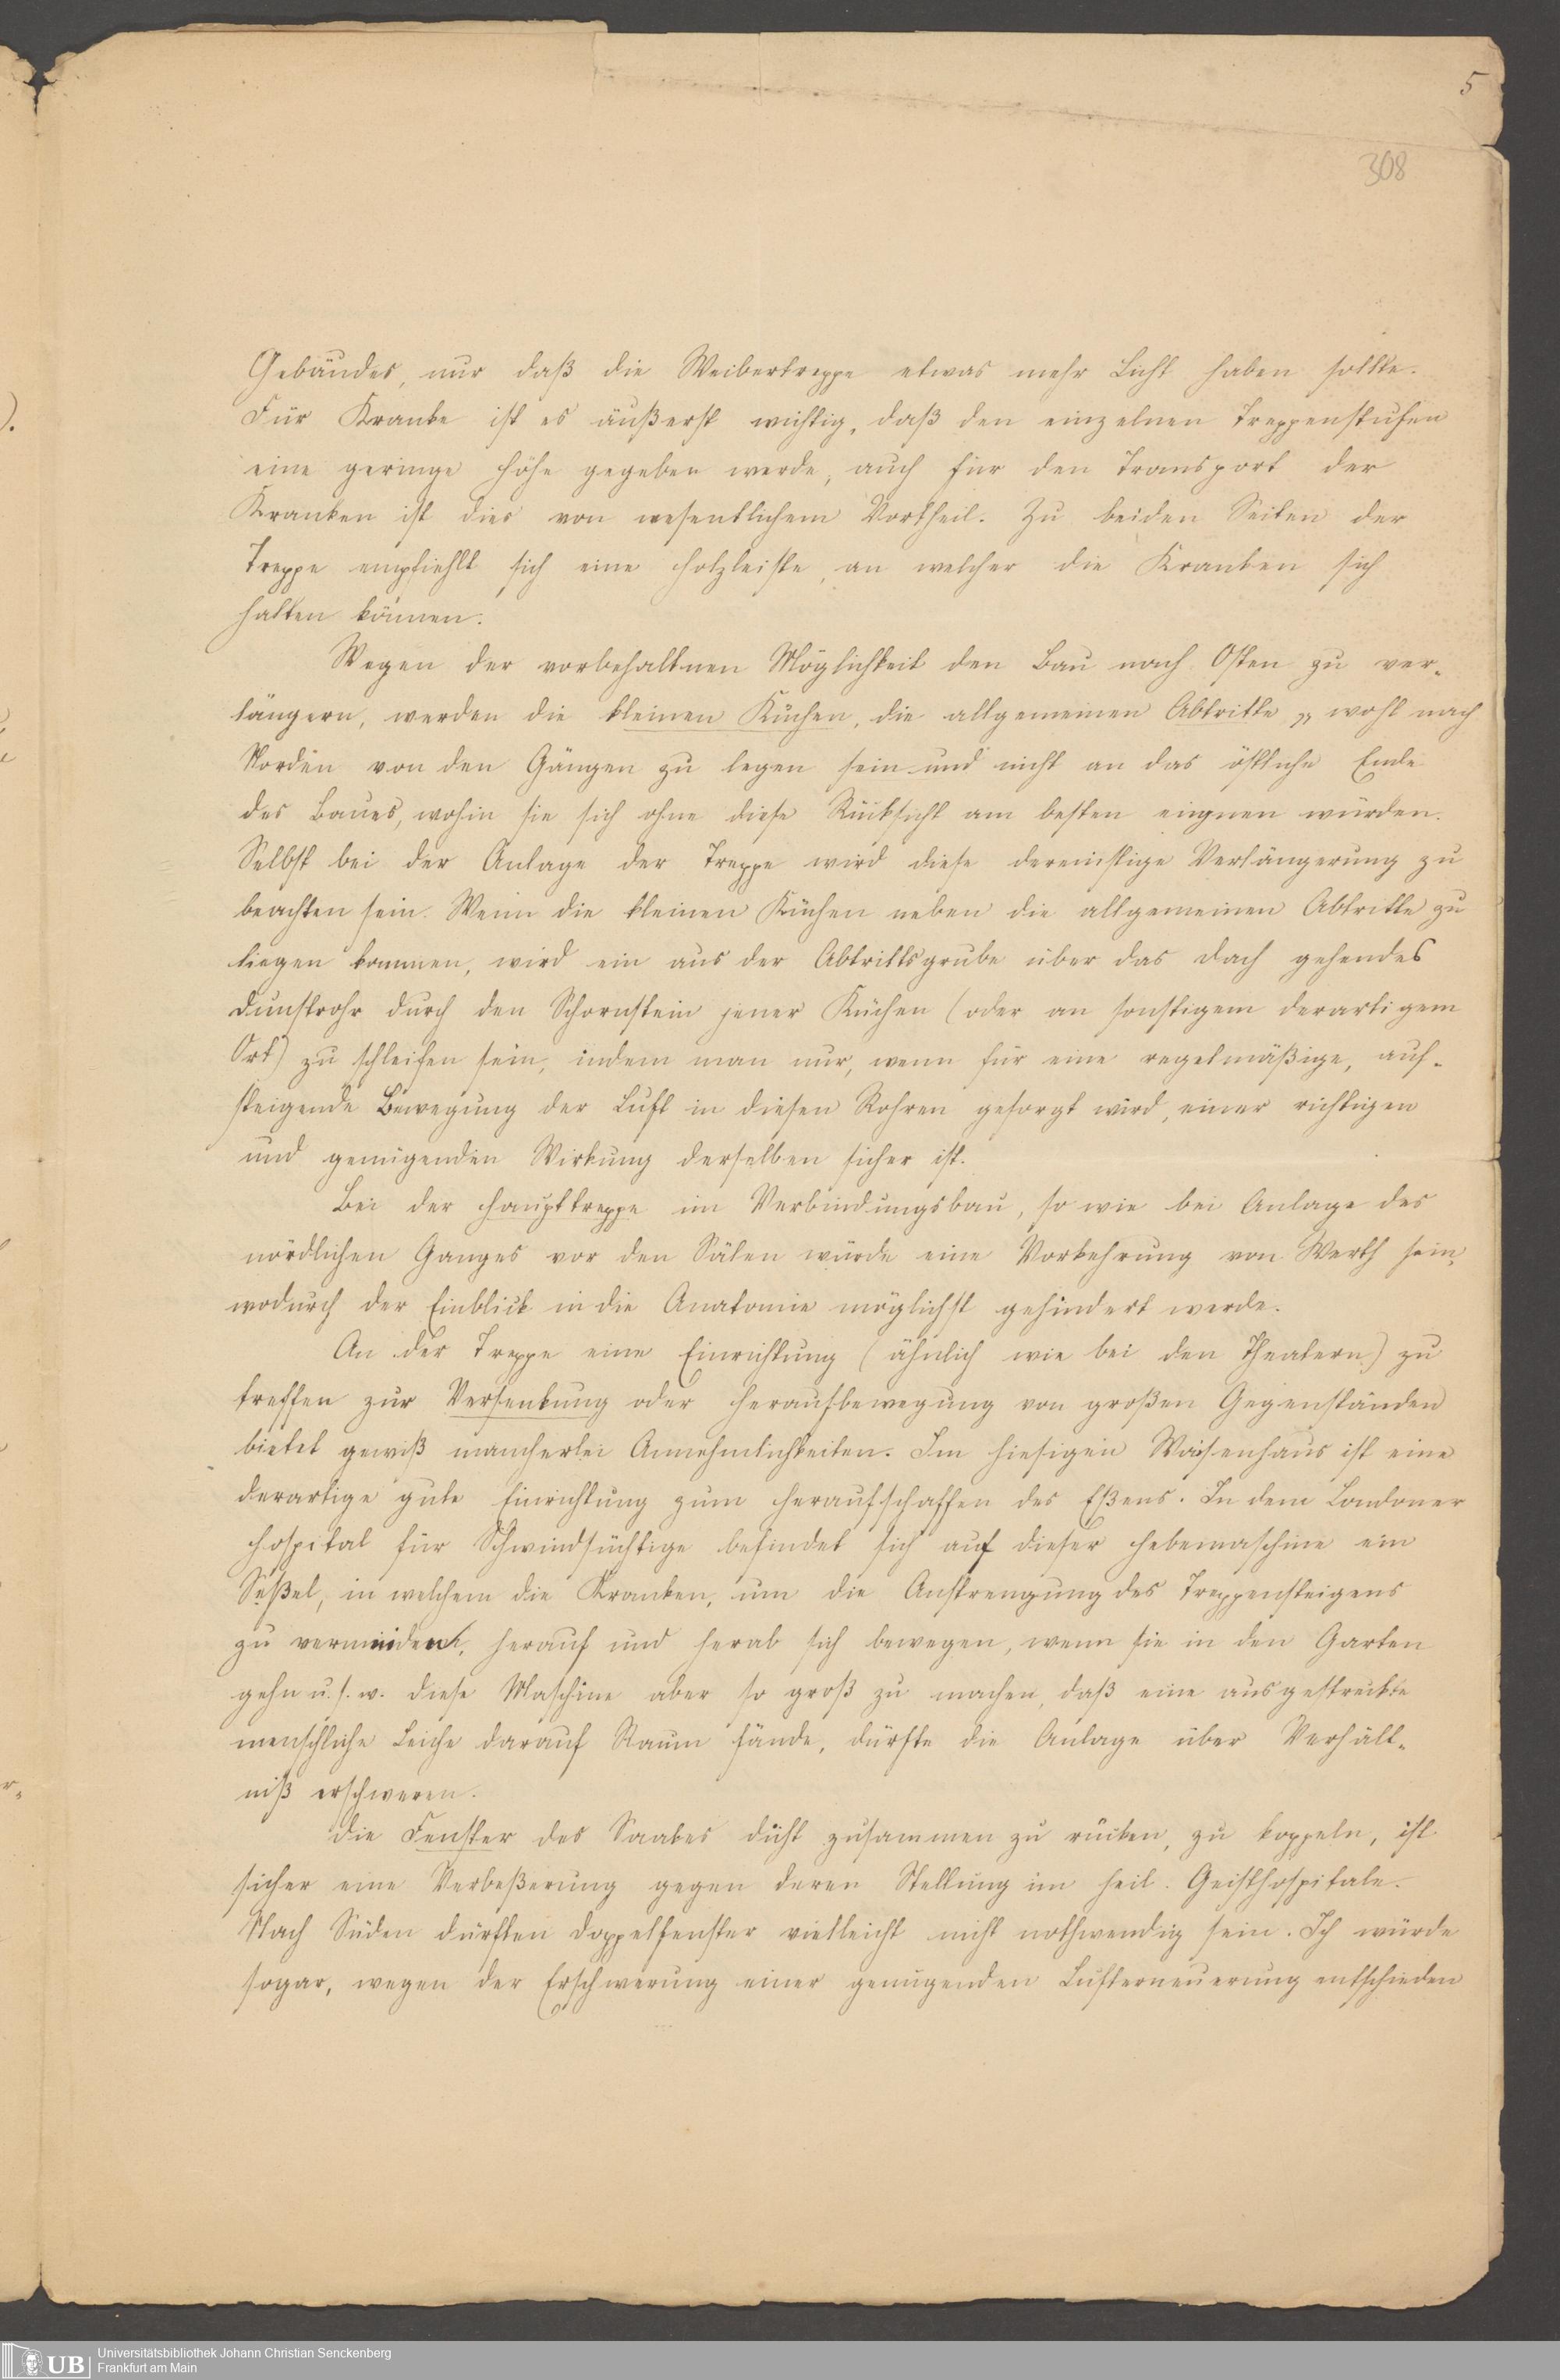 5
308
Gebäudes, nur daß die Weibertreppe etwas mehr Licht haben sollte.
Für Kranke ist es äußerst wichtig, daß den einzelnen Treppenstufen
eine geringe Höhe gegeben werde, auch für den Transport der
Kranken ist dies von wesentlichem Vortheil. Zu beiden Seiten der
Treppe empfiehlt sich eine Holzleiste, an welcher die Kranken sich
halten können.
Wegen der vorbehaltnen Möglichkeit den Bau nach Osten zu ver-
längern, werden die kleinen Küchen, die allgemeinen Abtritte wohl nach
Norden von den Gängen zu legen sein und nicht an das östliche Ende
des Baues, wohin sie sich ohne diese Rücksicht am besten eignen würden.
Selbst bei der Anlage der Treppe wird diese dereinstige Verlängerung zu
beachten sein. Wenn die kleinen Küchen neben die allgemeinen Abtritte zu
liegen kommen, wird ein aus der Abtrittsgrube über das Dach gehendes
Dunstrohr durch den Schornstein jener Küchen (oder an sonstigem derartigem
Ort) zu schleifen sein, indem man nur, wenn für eine regelmäßige, auf-
steigende Bewegung der Luft in diesen Rohren gesorgt wird, einer richtigen
und genügenden Wirkung derselben sicher ist.
Bei der Haupttreppe im Verbindungsbau, so wie bei Anlage des
nördlichen Ganges vor den Sälen würde eine Vorkehrung von Werth sein,
wodurch der Einblick in die Anatomie möglichst gehindert werde.
An der Treppe eine Einrichtung (ähnlich wie bei den Theatern) zu
treffen zur Versenkung oder Heraufbewegung von großen Gegenständen
bietet gewiß mancherlei Annehmlichkeiten. Im hiesigen Waisenhaus ist eine
derartige gute Einrichtung zum Heraufschaffen des Eßens. In dem Londoner
Hospital für Schwindsüchtige befindet sich auf dieser Hebemaschine ein
Seßel, in welchem die Kranken, um die Anstrengung des Treppensteigens
zu vermeiden, herauf und herab sich bewegen, wenn sie in den Garten
gehn u.s.w. Diese Maschine aber so groß zu machen, daß eine ausgestreckte
menschliche Leiche darauf Raum fände, dürfte die Anlage über Verhält-
niß erschweren.
Die Fenster des Saales dicht zusammen zu rücken, zu koppeln, ist
sicher eine Verbeßerung gegen deren Stellung im heil. Geisthospitale.
Nach Süden dürften Doppelfenster vielleicht nicht nothwendig sein. Ich würde
sogar, wegen der Erschwerung einer genügenden Lufterneuerung entschieden
UB
Universitätsbibliothek Johann Christian Senckenberg
Frankfurt am Main